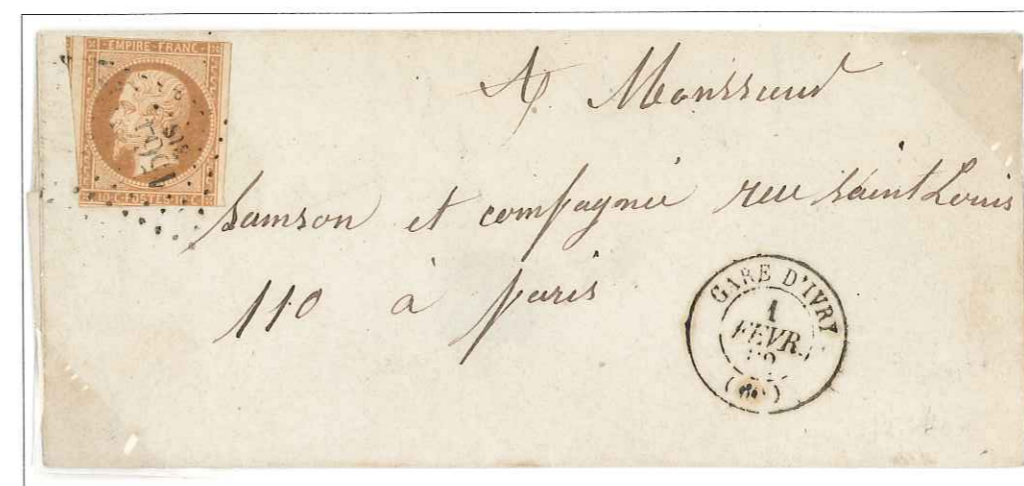 EMPIRE FRANC
A Monssieud
Samson et compagnie reu saint Louis
110 à paris
GARE D'IVRY
1
FEVR.
(60)